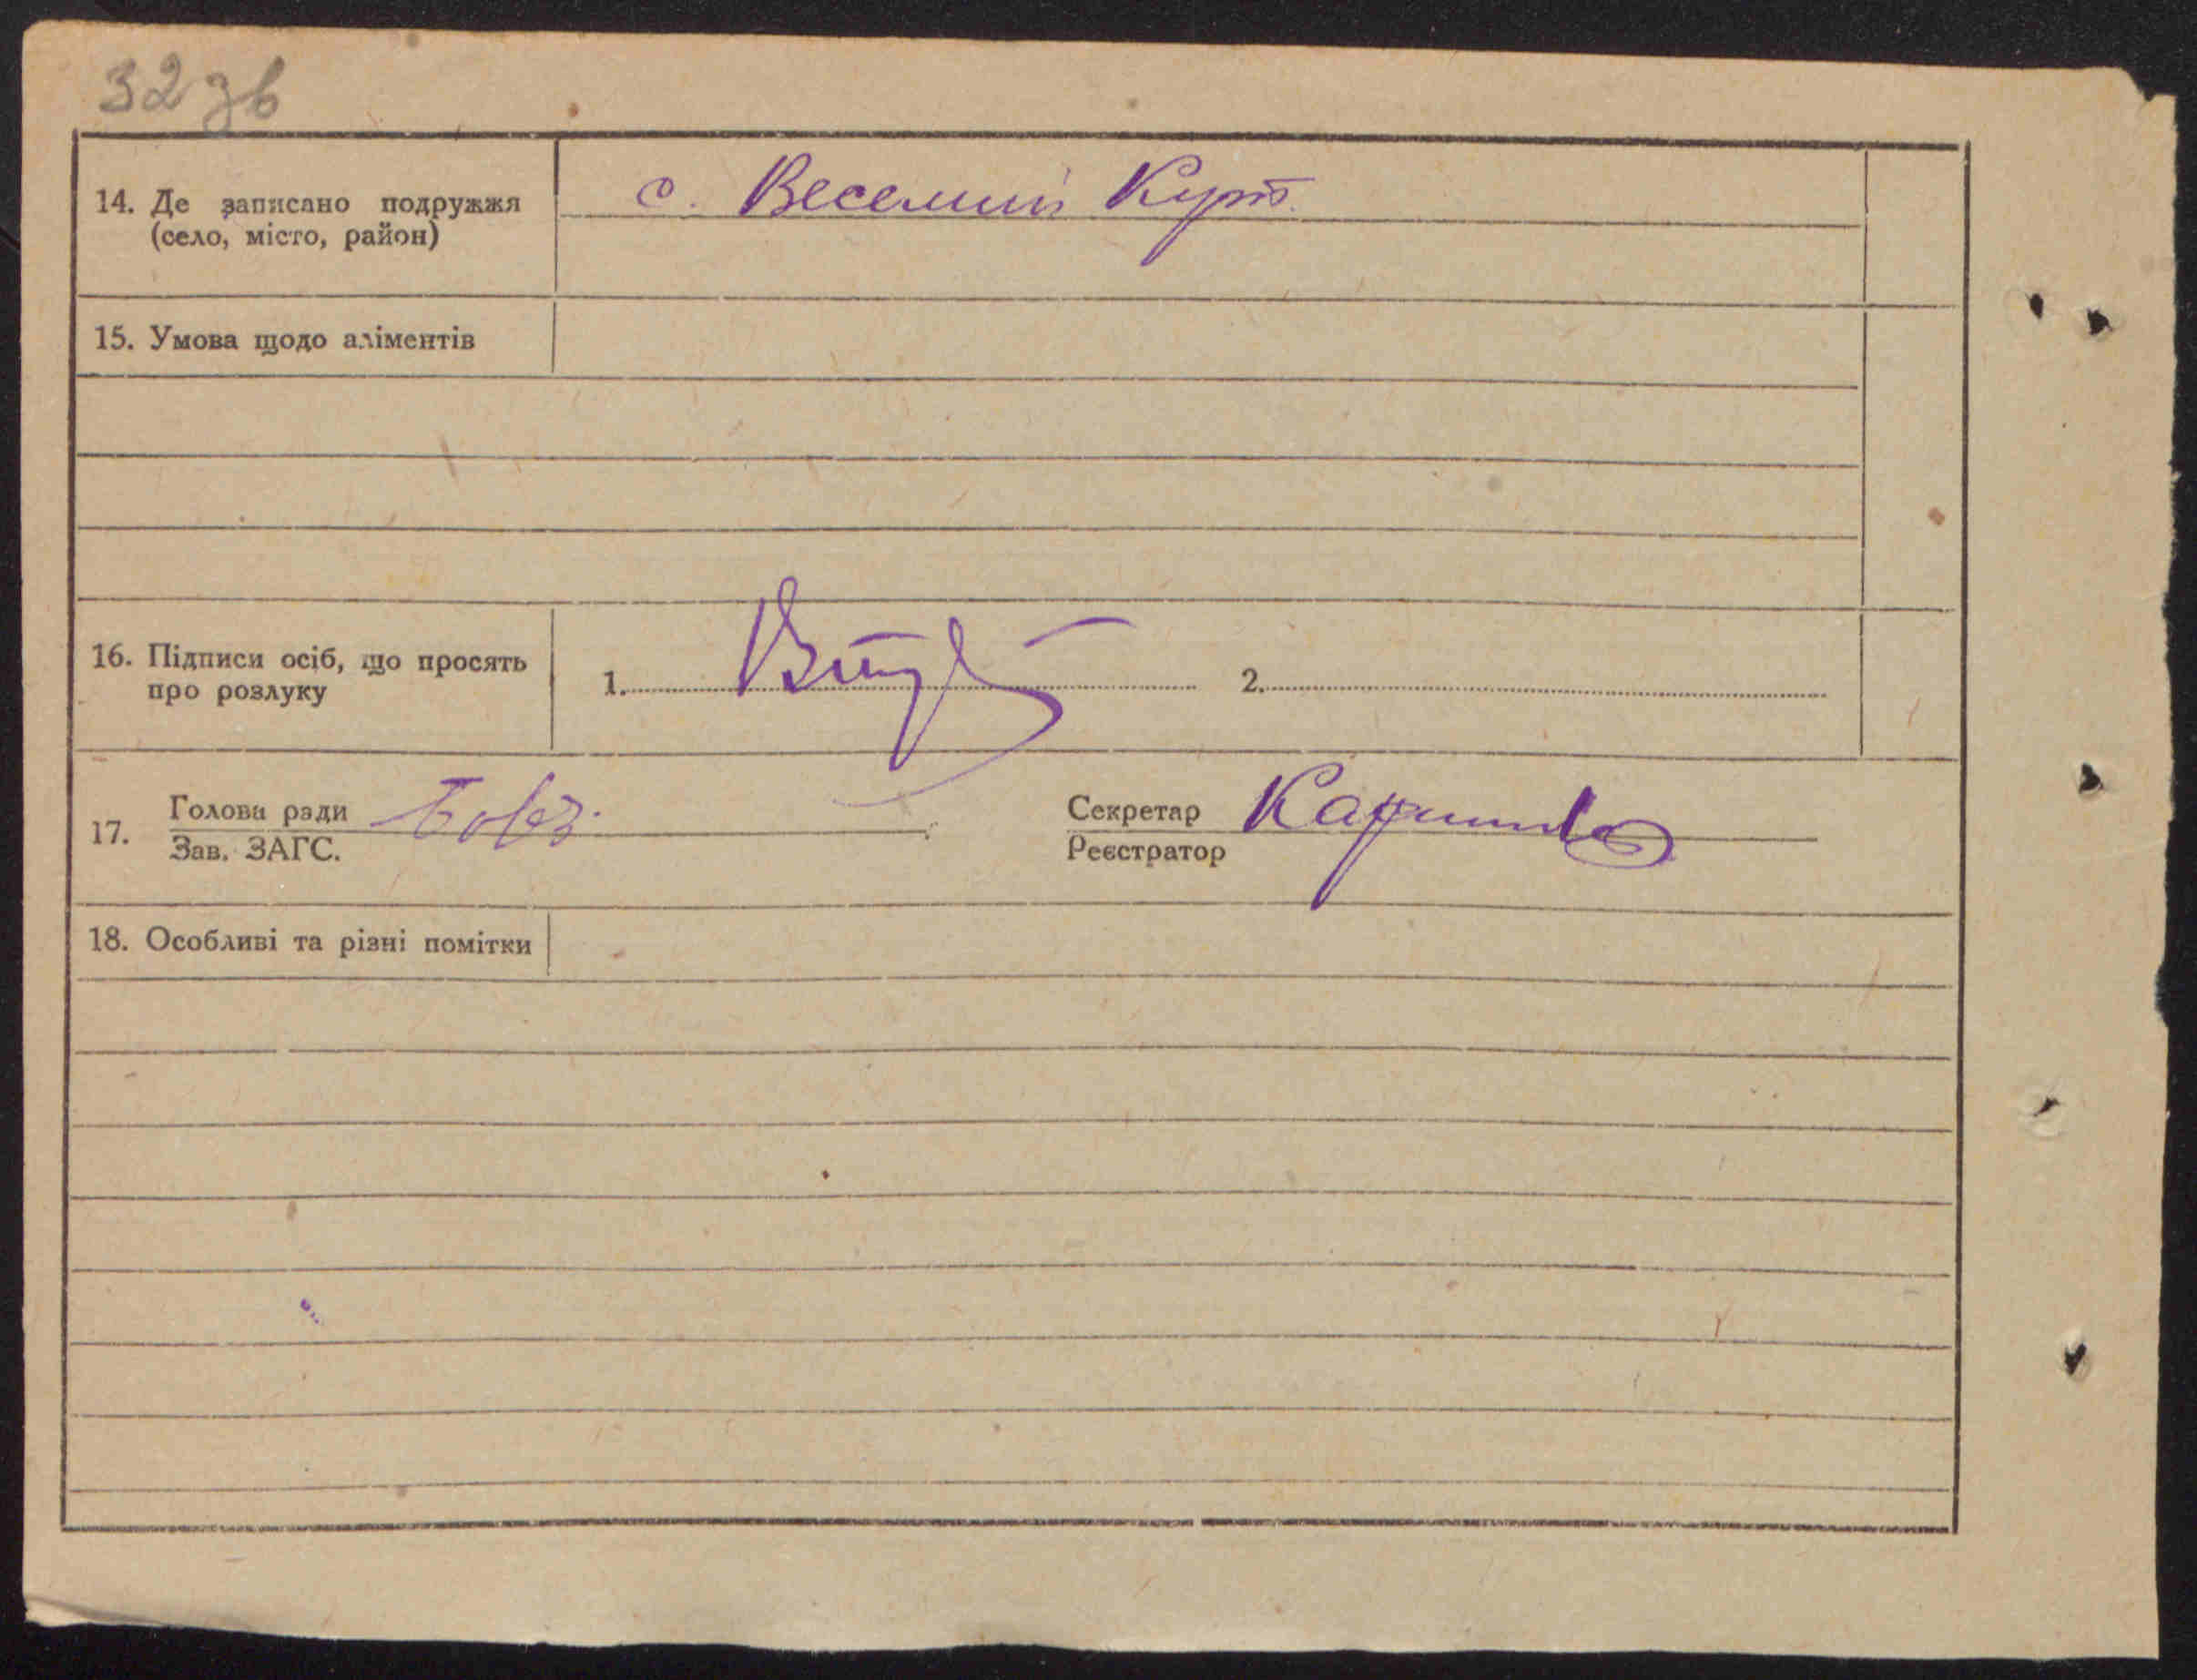 32 зв
14. Де записано подружжя
(село, місто, район)
с. Веселий Кут.
15. Умова щодо аліментів
16. Підписи осіб, що просять
про розлуку
1. 2.
17. Голова ради
Зав. ЗАГС.
Секретар
Реєстратор
18. Особливі та різні помітки